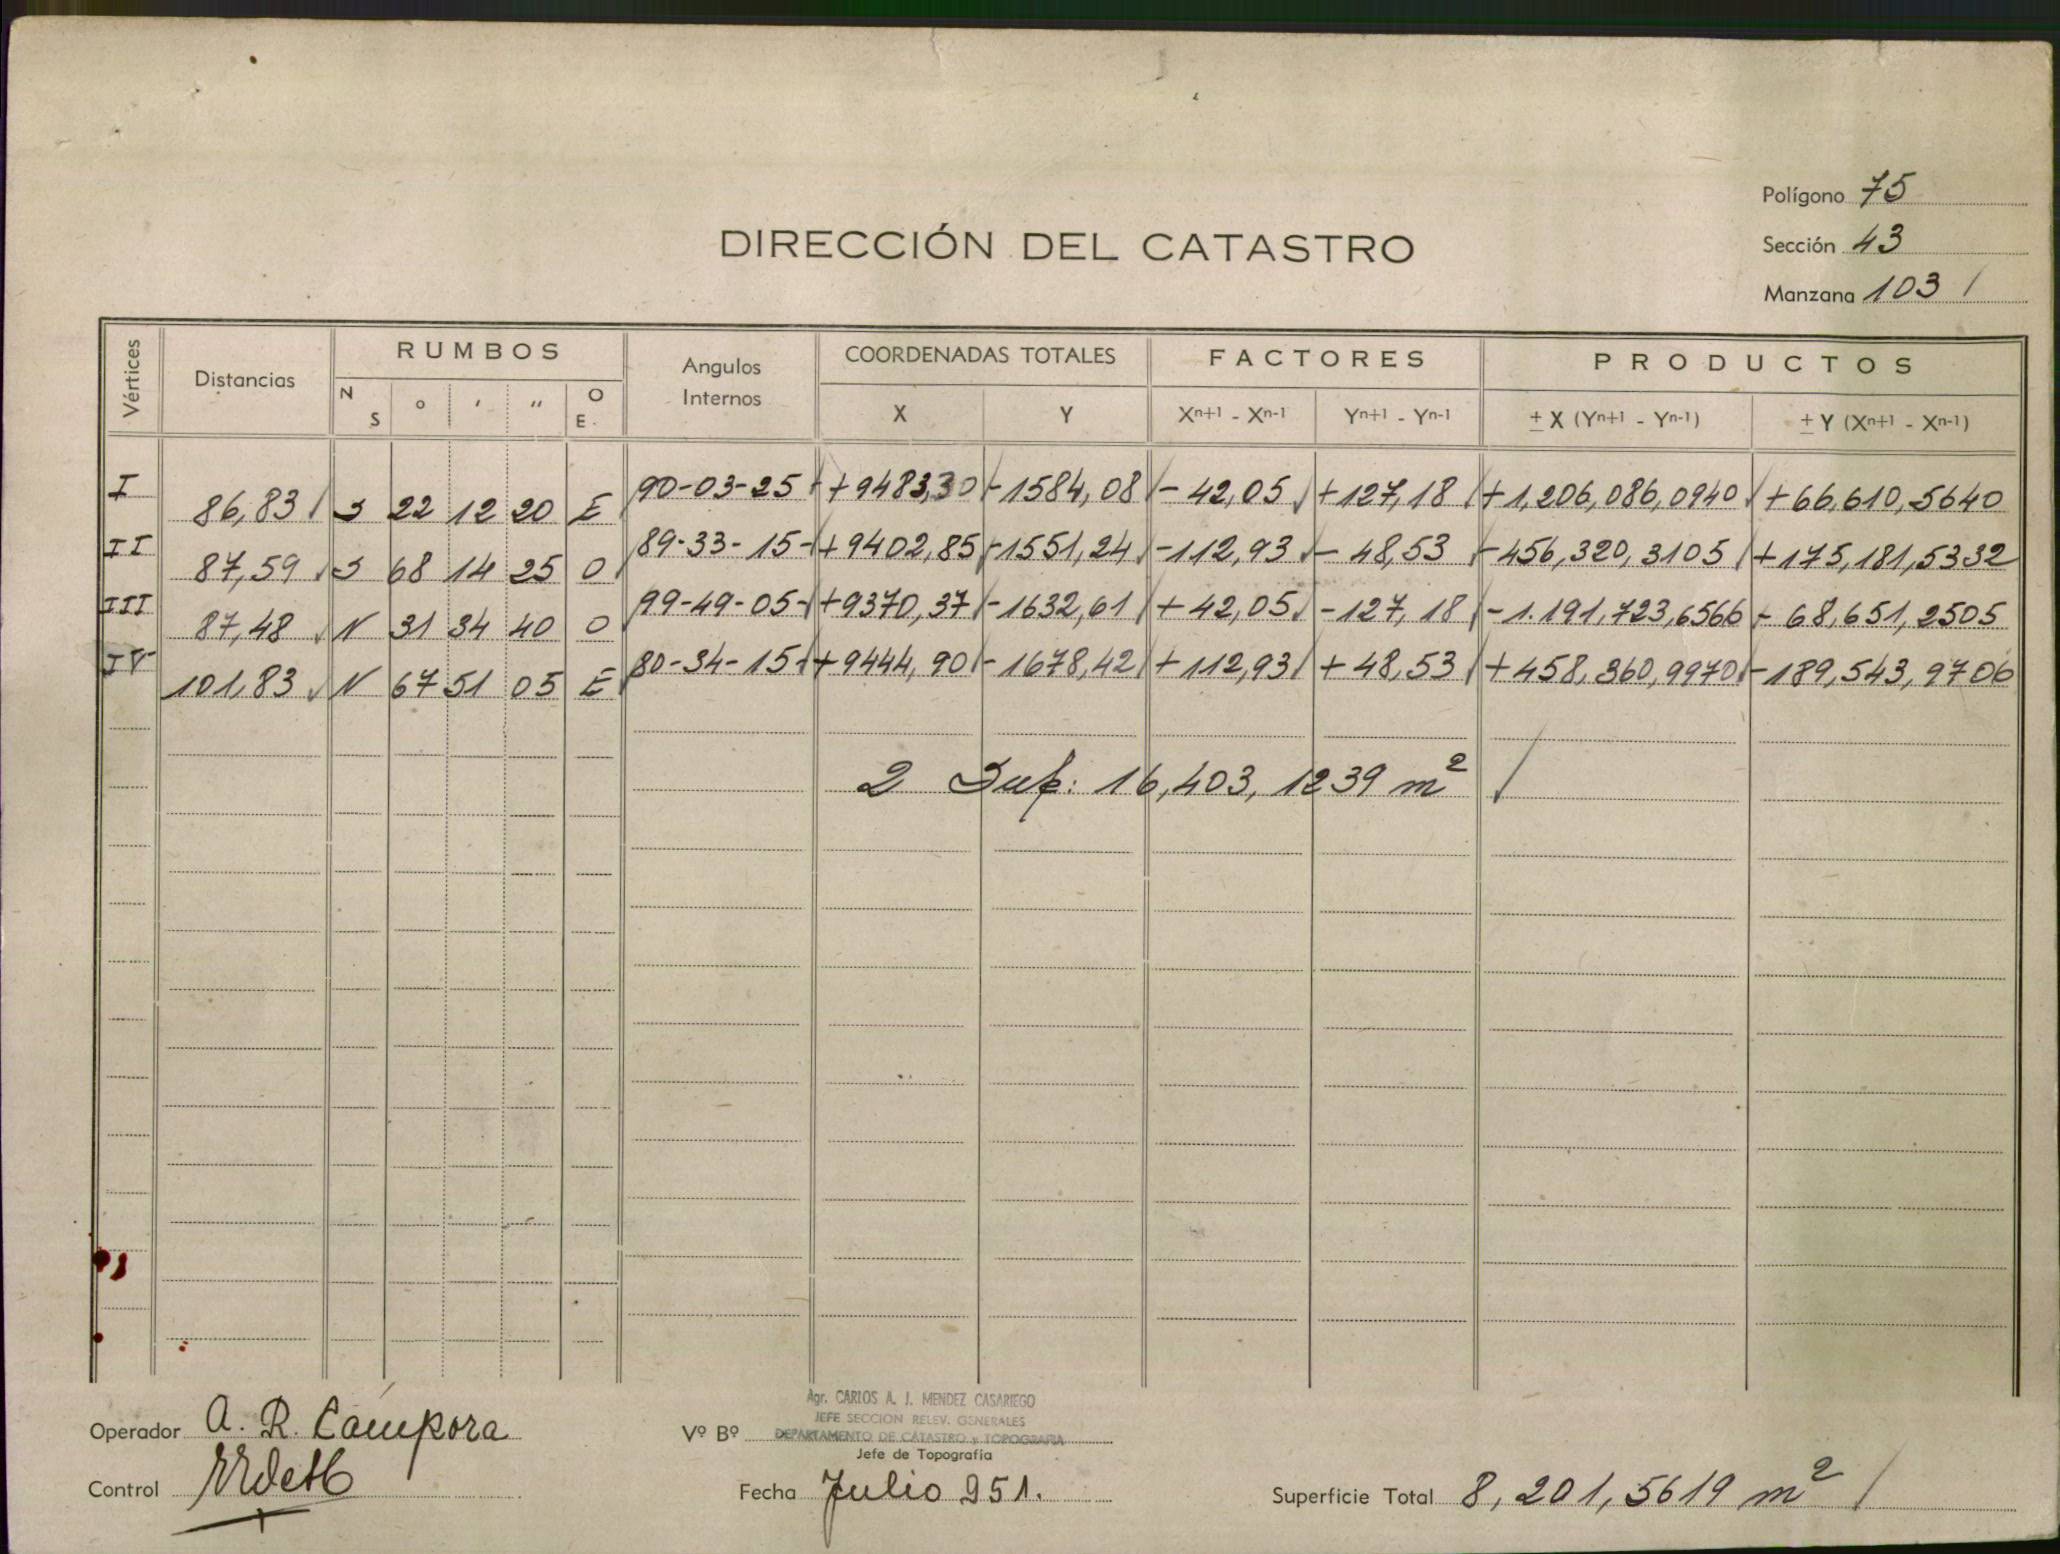 Polígono 75
Sección 43
Manzana 103 /
DIRECCIÓN DEL CATASTRO
Vértices Distancias RUMBOS Angulos Internos COORDENADAS TOTALES FACTORES PRODUCTOS
N S ° ' " O E. X Y Xⁿ⁺¹ - Xⁿ⁻¹ Yⁿ⁺¹ - Yⁿ⁻¹ ± X (Yⁿ⁺¹ - Yⁿ⁻¹) ± Y (Xⁿ⁺¹ - Xⁿ⁻¹)
I 90-03-25 +9483,30 -1584,08 -42,05 +127,18 +1,206,086,0940 +66,610,5640
86,83 S 22 12 20 E
II 89-33-15 +9402,85 -1551,24 -112,93 -48,53 -456,320,3105 +175,181,5332
87,59 S 68 14 25 O
III 99-49-05 +9370,37 -1632,61 +42,05 -127,18 -1.191.723,6566 -68,651,2505
87,48 N 31 34 40 O
IV 80-34-15 +9444,90 -1678,42 +112,93 +48,53 +458,360,9970 -189,543,9706
101,83 N 67 51 05 E
2 Sup: 16,403,1239 m² /
Agr. CARLOS A. J. MENDEZ CASARIEGO
JEFE SECCION RELEV. GENERALES
DEPARTAMENTO DE CATASTRO y TOPOGRAFIA
Operador A. R. Cámpora Vº Bº
Jefe de Topografía
Control Fecha Julio 951. Superficie Total 8,201,5619 m² /